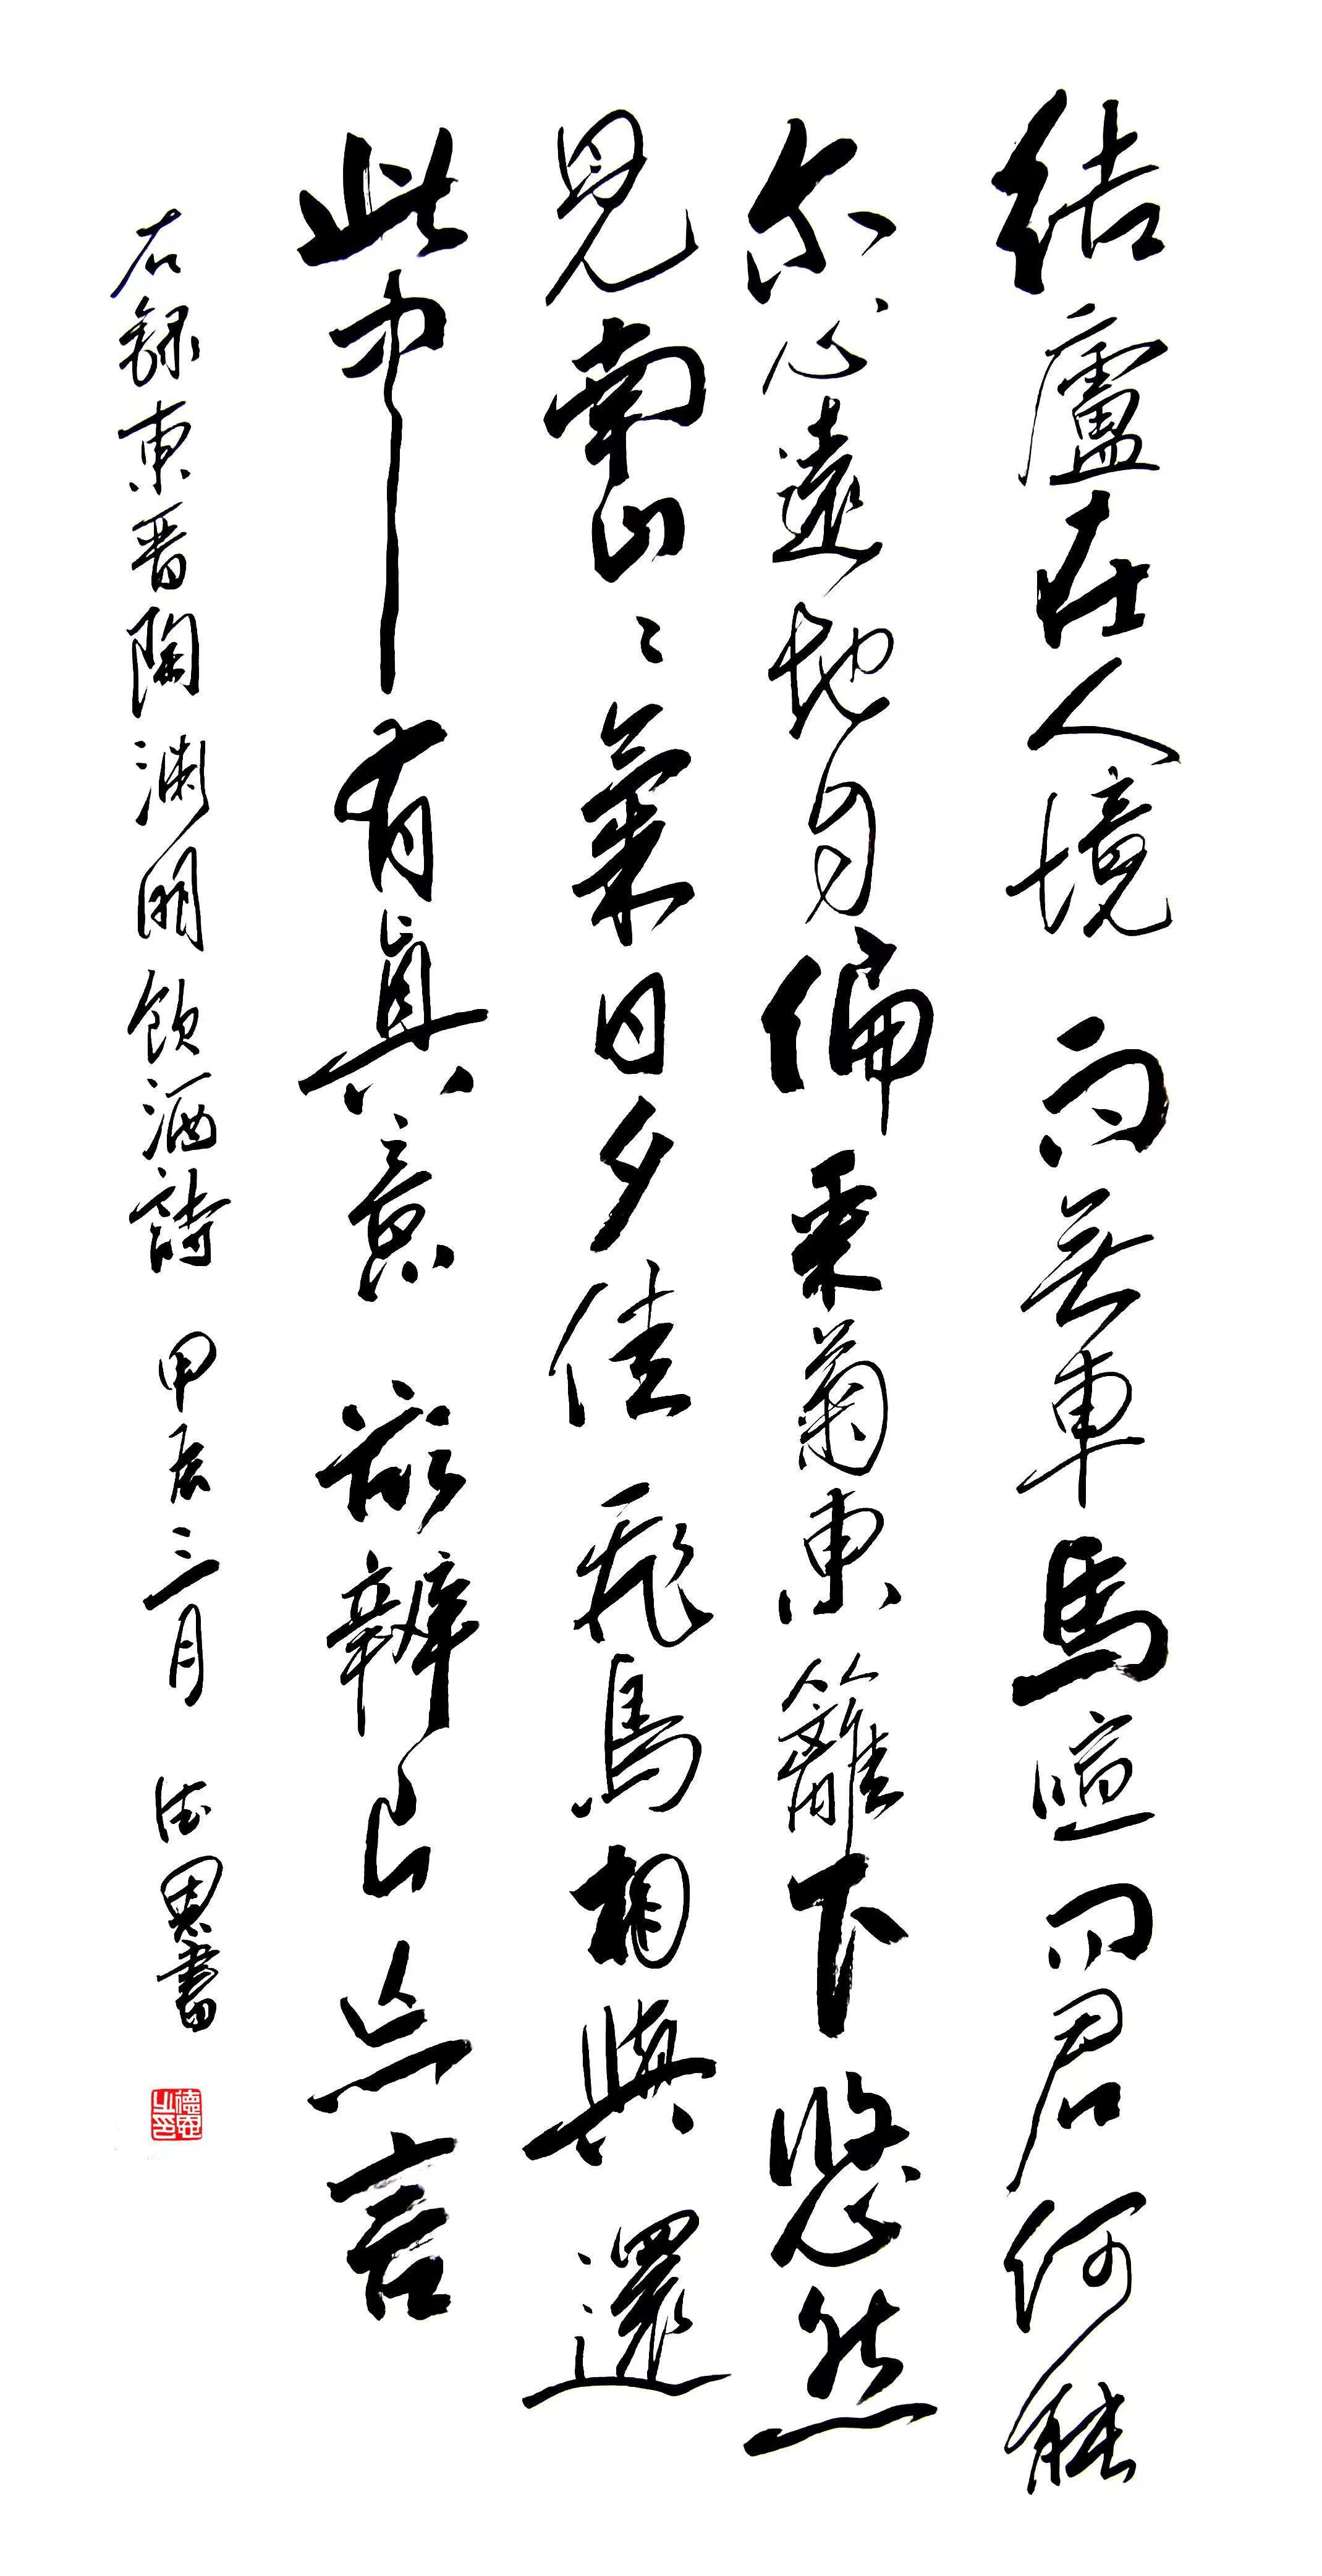 結廬在人境而無車馬喧問君何能
尔心遠地自偏采菊東籬下悠然
見南山〻氣日夕佳飛鳥相與還
此中有真意欲辨已忘言
右録東晋陶渊明飲酒詩 甲辰三月 德恩書
德恩之印